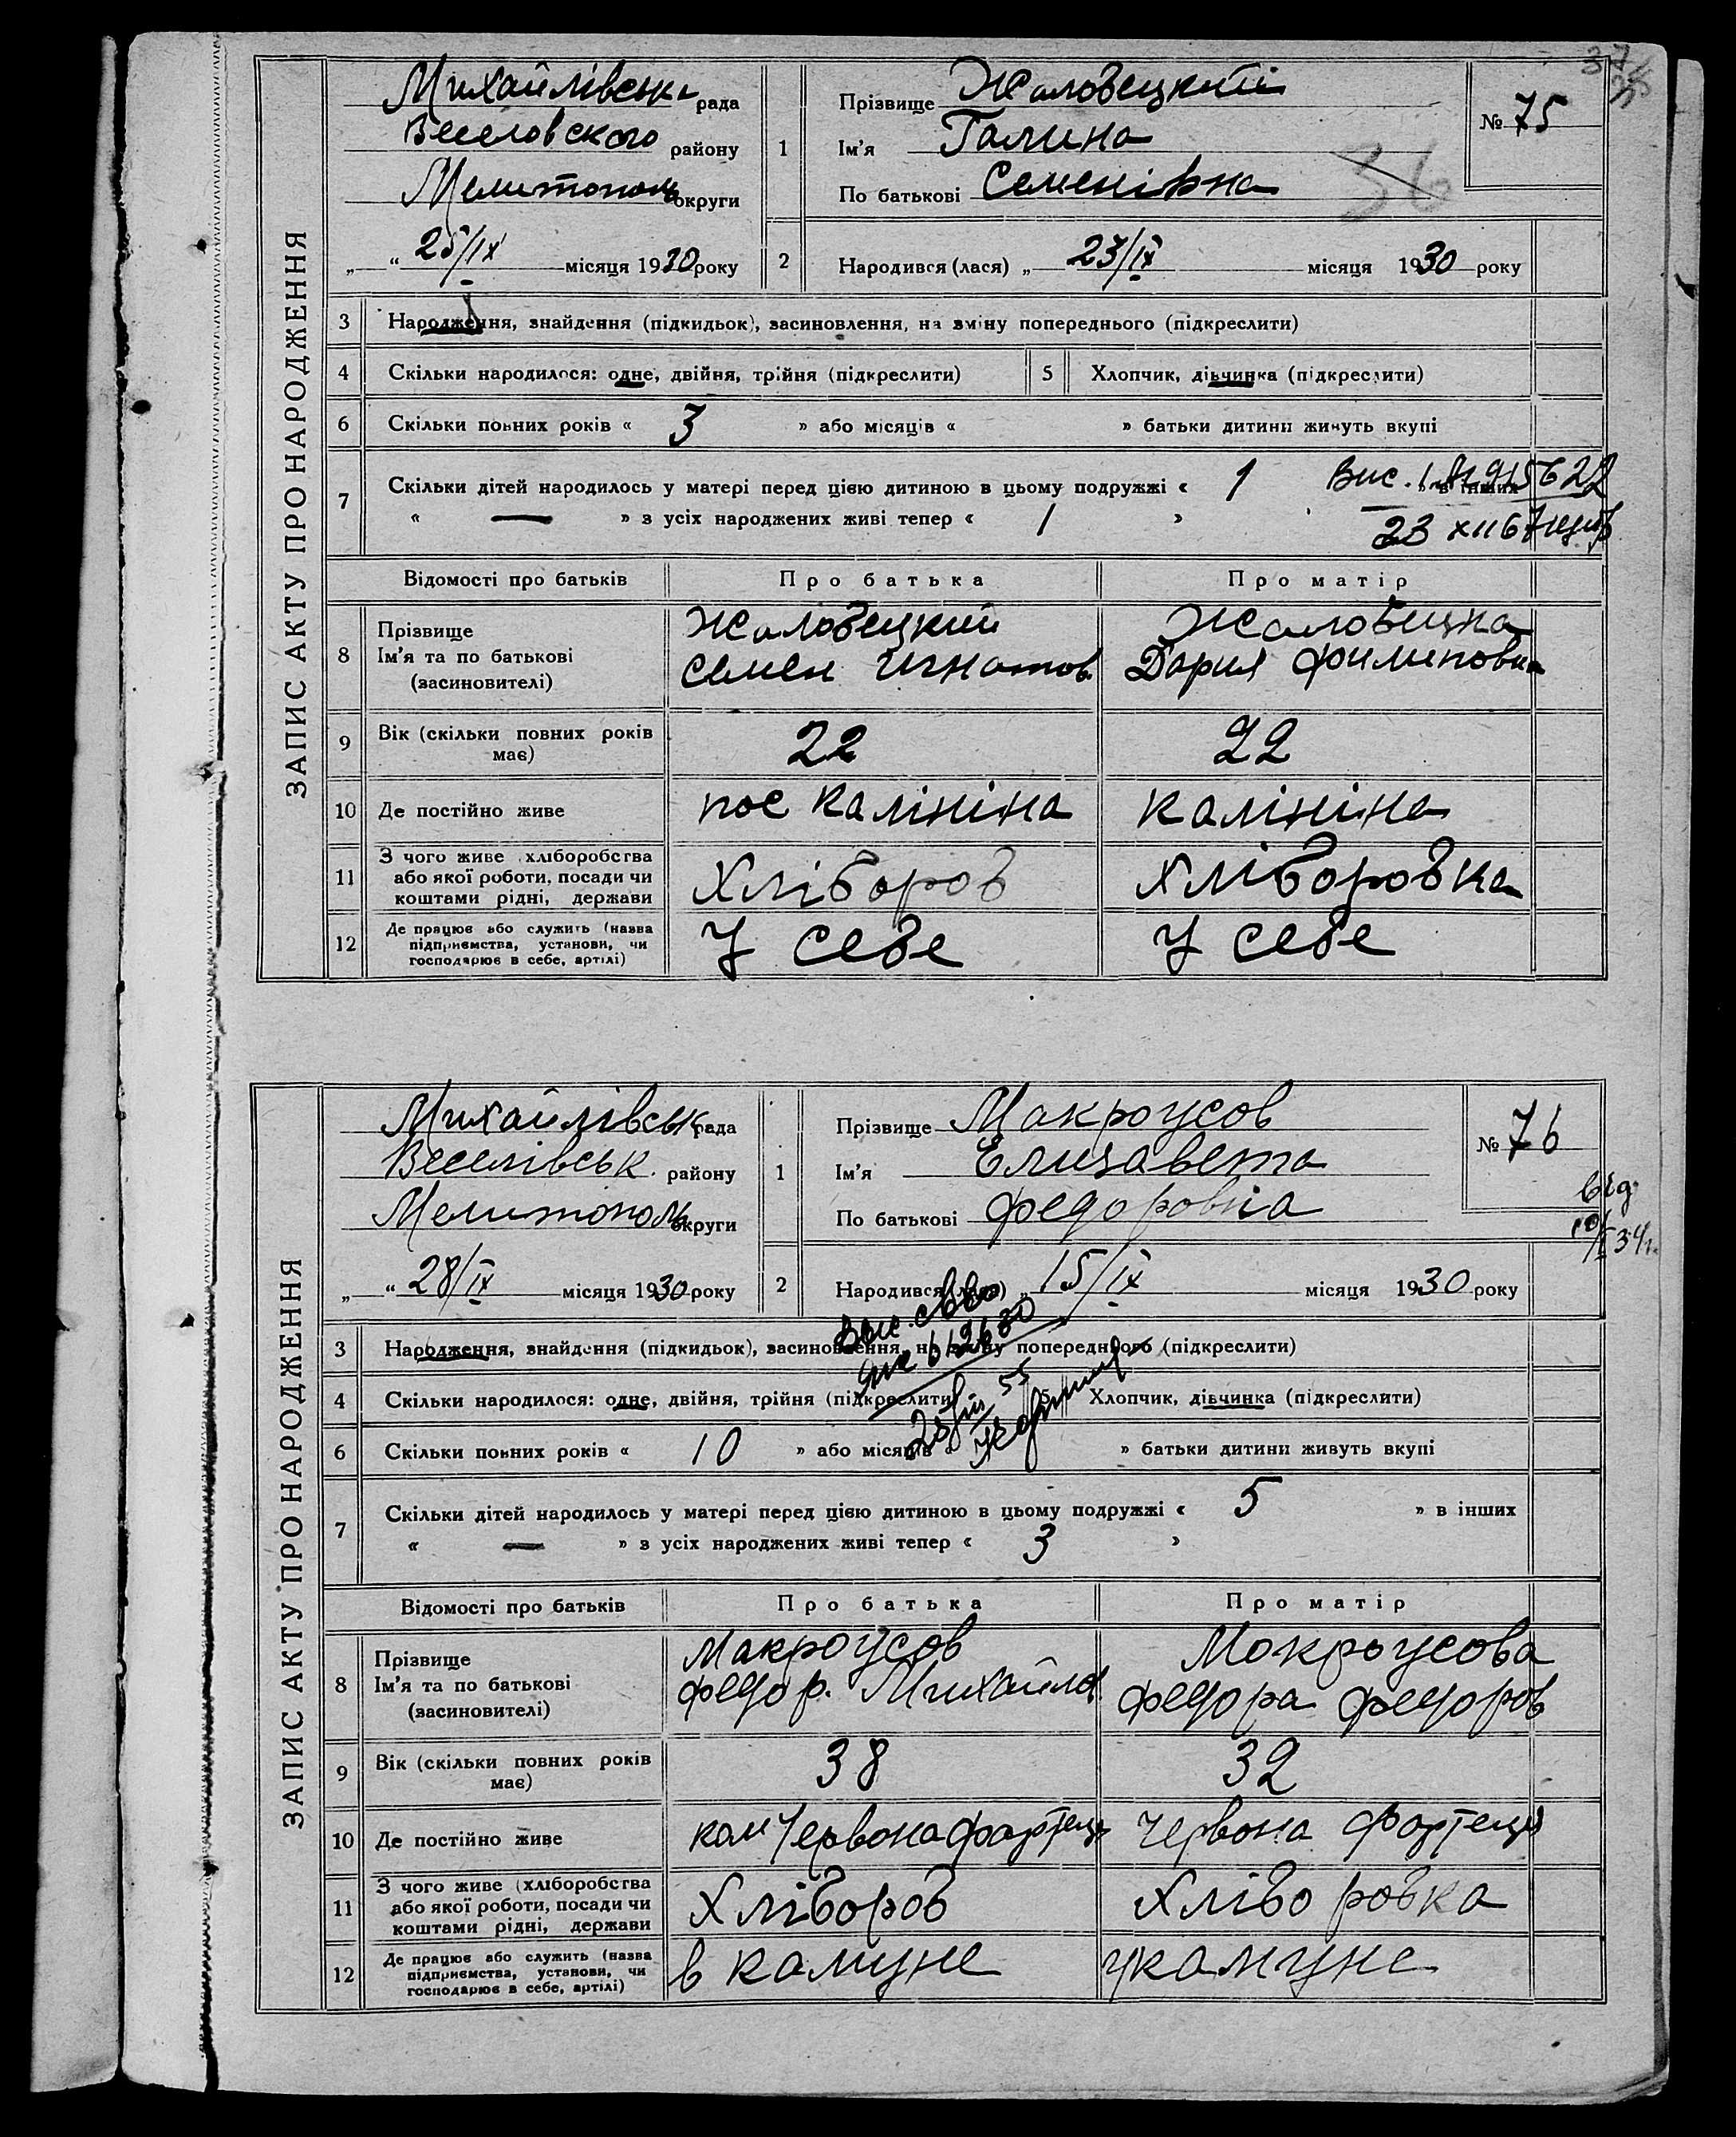 ЗАПИС АКТУ ПРО НАРОДЖЕННЯ
Михайлівська рада
Веселовского району
Мелитополь округи
„ “ 25/IX місяця 1930 року
1
Прізвище Жаловецкий
Ім'я Галина
По батькові Семенівна
№ 75
36
2 Народився (лася) „ 23/IX місяця 1930 року
3 Народження, знайдення (підкидьок), засиновлення, на зміну попереднього (підкреслити)
4 Скільки народилося: одне, двійня, трійня (підкреслити) 5 Хлопчик, дівчинка (підкреслити)
6 Скільки повних років « 3 » або місяців « » батьки дитини живуть вкупі
7 Скільки дітей народилось у матері перед цією дитиною в цьому подружжі « 1 » в інших
« — » з усіх народжених живі тепер « 1 »
Відомості про батьків Про батька Про матір
8 Прізвище Жаловецкий Жаловецка
Ім'я та по батькові Семен Игнатов. Дария Филиповна
(засиновителі)
9 Вік (скільки повних років має) 22 22
10 Де постійно живе пос Калініна Калініна
11 З чого живе (хліборобства або якої роботи, посади чи коштами рідні, держави Хліборов Хліборовка
12 Де працює або служить (назва підприємства, установи, чи господарює в себе, артілі) У себе У себе
ЗАПИС АКТУ ПРО НАРОДЖЕННЯ
Михайлівськ рада
Веселівськ. району
Мелитополь округи
„ “ 28/IX місяця 1930 року
1
Прізвище Макроусов
Ім'я Елизавета
По батькові Федоровна
№ 76
2 Народився (лася) „ 15/IX місяця 1930 року
3 Народження, знайдення (підкидьок), засиновлення, на зміну попереднього (підкреслити)
4 Скільки народилося: одне, двійня, трійня (підкреслити) 5 Хлопчик, дівчинка (підкреслити)
6 Скільки повних років « 10 » або місяців « » батьки дитини живуть вкупі
7 Скільки дітей народилось у матері перед цією дитиною в цьому подружжі « 5 » в інших
« — » з усіх народжених живі тепер « 3 »
Відомості про батьків Про батька Про матір
8 Прізвище Макроусов Мокроусова
Ім'я та по батькові Федор. Михайлов. Федора Федоров
(засиновителі)
9 Вік (скільки повних років має) 38 32
10 Де постійно живе ком Червона Фортеця Червона Фортеця
11 З чого живе (хліборобства або якої роботи, посади чи коштами рідні, держави Хліборов Хліборовка
12 Де працює або служить (назва підприємства, установи, чи господарює в себе, артілі) в камуне у камуне